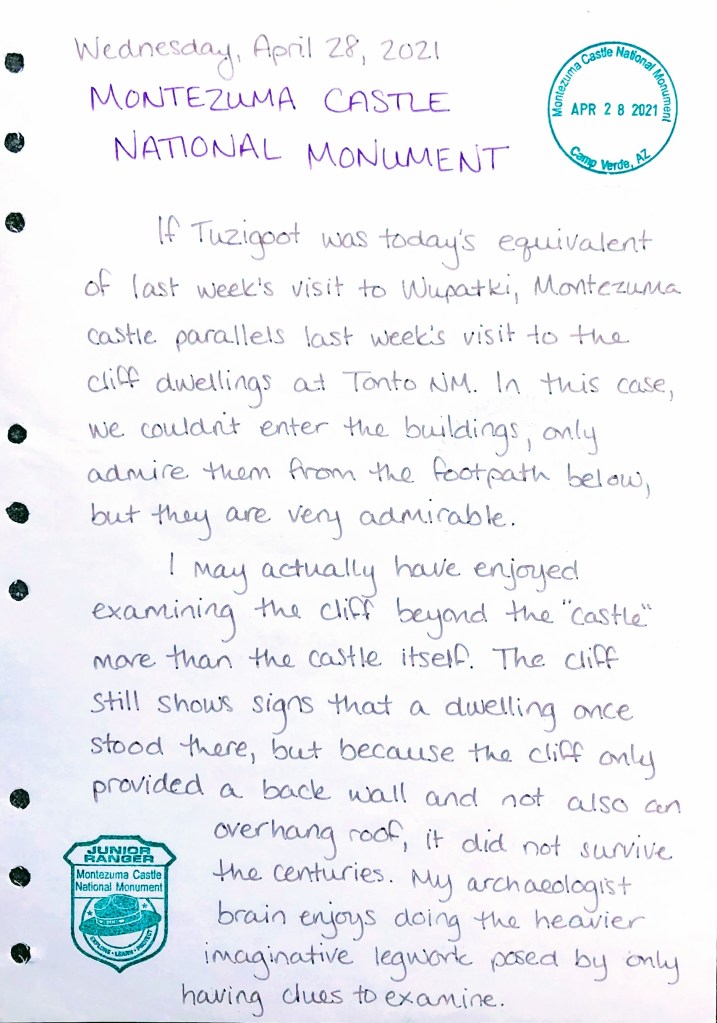 Wednesday, April 28, 2021
MONTEZUMA CASTLE
NATIONAL MONUMENT
Montezuma Castle National Monument
APR 28 2021
Camp Verde, AZ
If Tuzigoot was today's equivalent
of last week's visit to Wupatki, Montezuma
castle parallels last week's visit to the
cliff dwellings at Tonto NM. In this case,
we couldn't enter the buildings, only
admire them from the footpath below,
but they are very admirable.
I may actually have enjoyed
examining the cliff beyond the "castle"
more than the castle itself. The cliff
still shows signs that a dwelling once
stood there, but because the cliff only
provided a back wall and not also an
overhang roof, it did not survive
the centuries. My archaeologist
brain enjoys doing the heavier
imaginative legwork posed by only
having clues to examine.
JUNIOR
RANGER
Montezuma Castle
National Monument
EXPLORE · LEARN · PROTECT